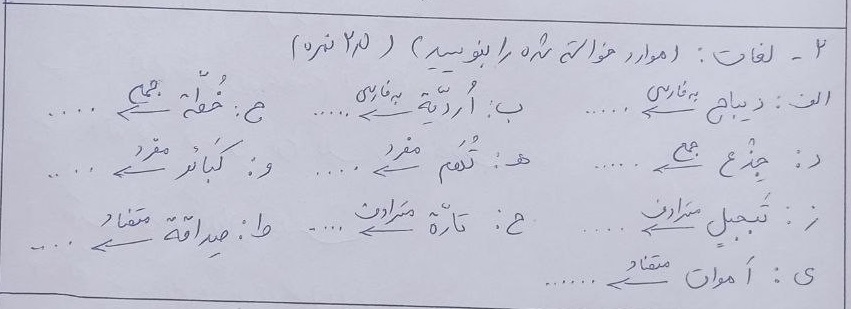 ۲ - لغات : (موارد خواسته شده را بنویسید) (۲/۵ نمره)
الف : دیباج ← به فارسی ..... ب : أردیّة ← به فارسی ..... ج : خُفّة ← جمع ....
د : جِذْع ← جمع ..... هـ : تُهَم ← مفرد .... و : کَبائر ← مفرد ....
ز : تَبجیلٍ ← مترادف .... ح : تارّة ← مترادف ..... ط : صِداقة ← متضاد ....
ی : أموات ← متضاد ......